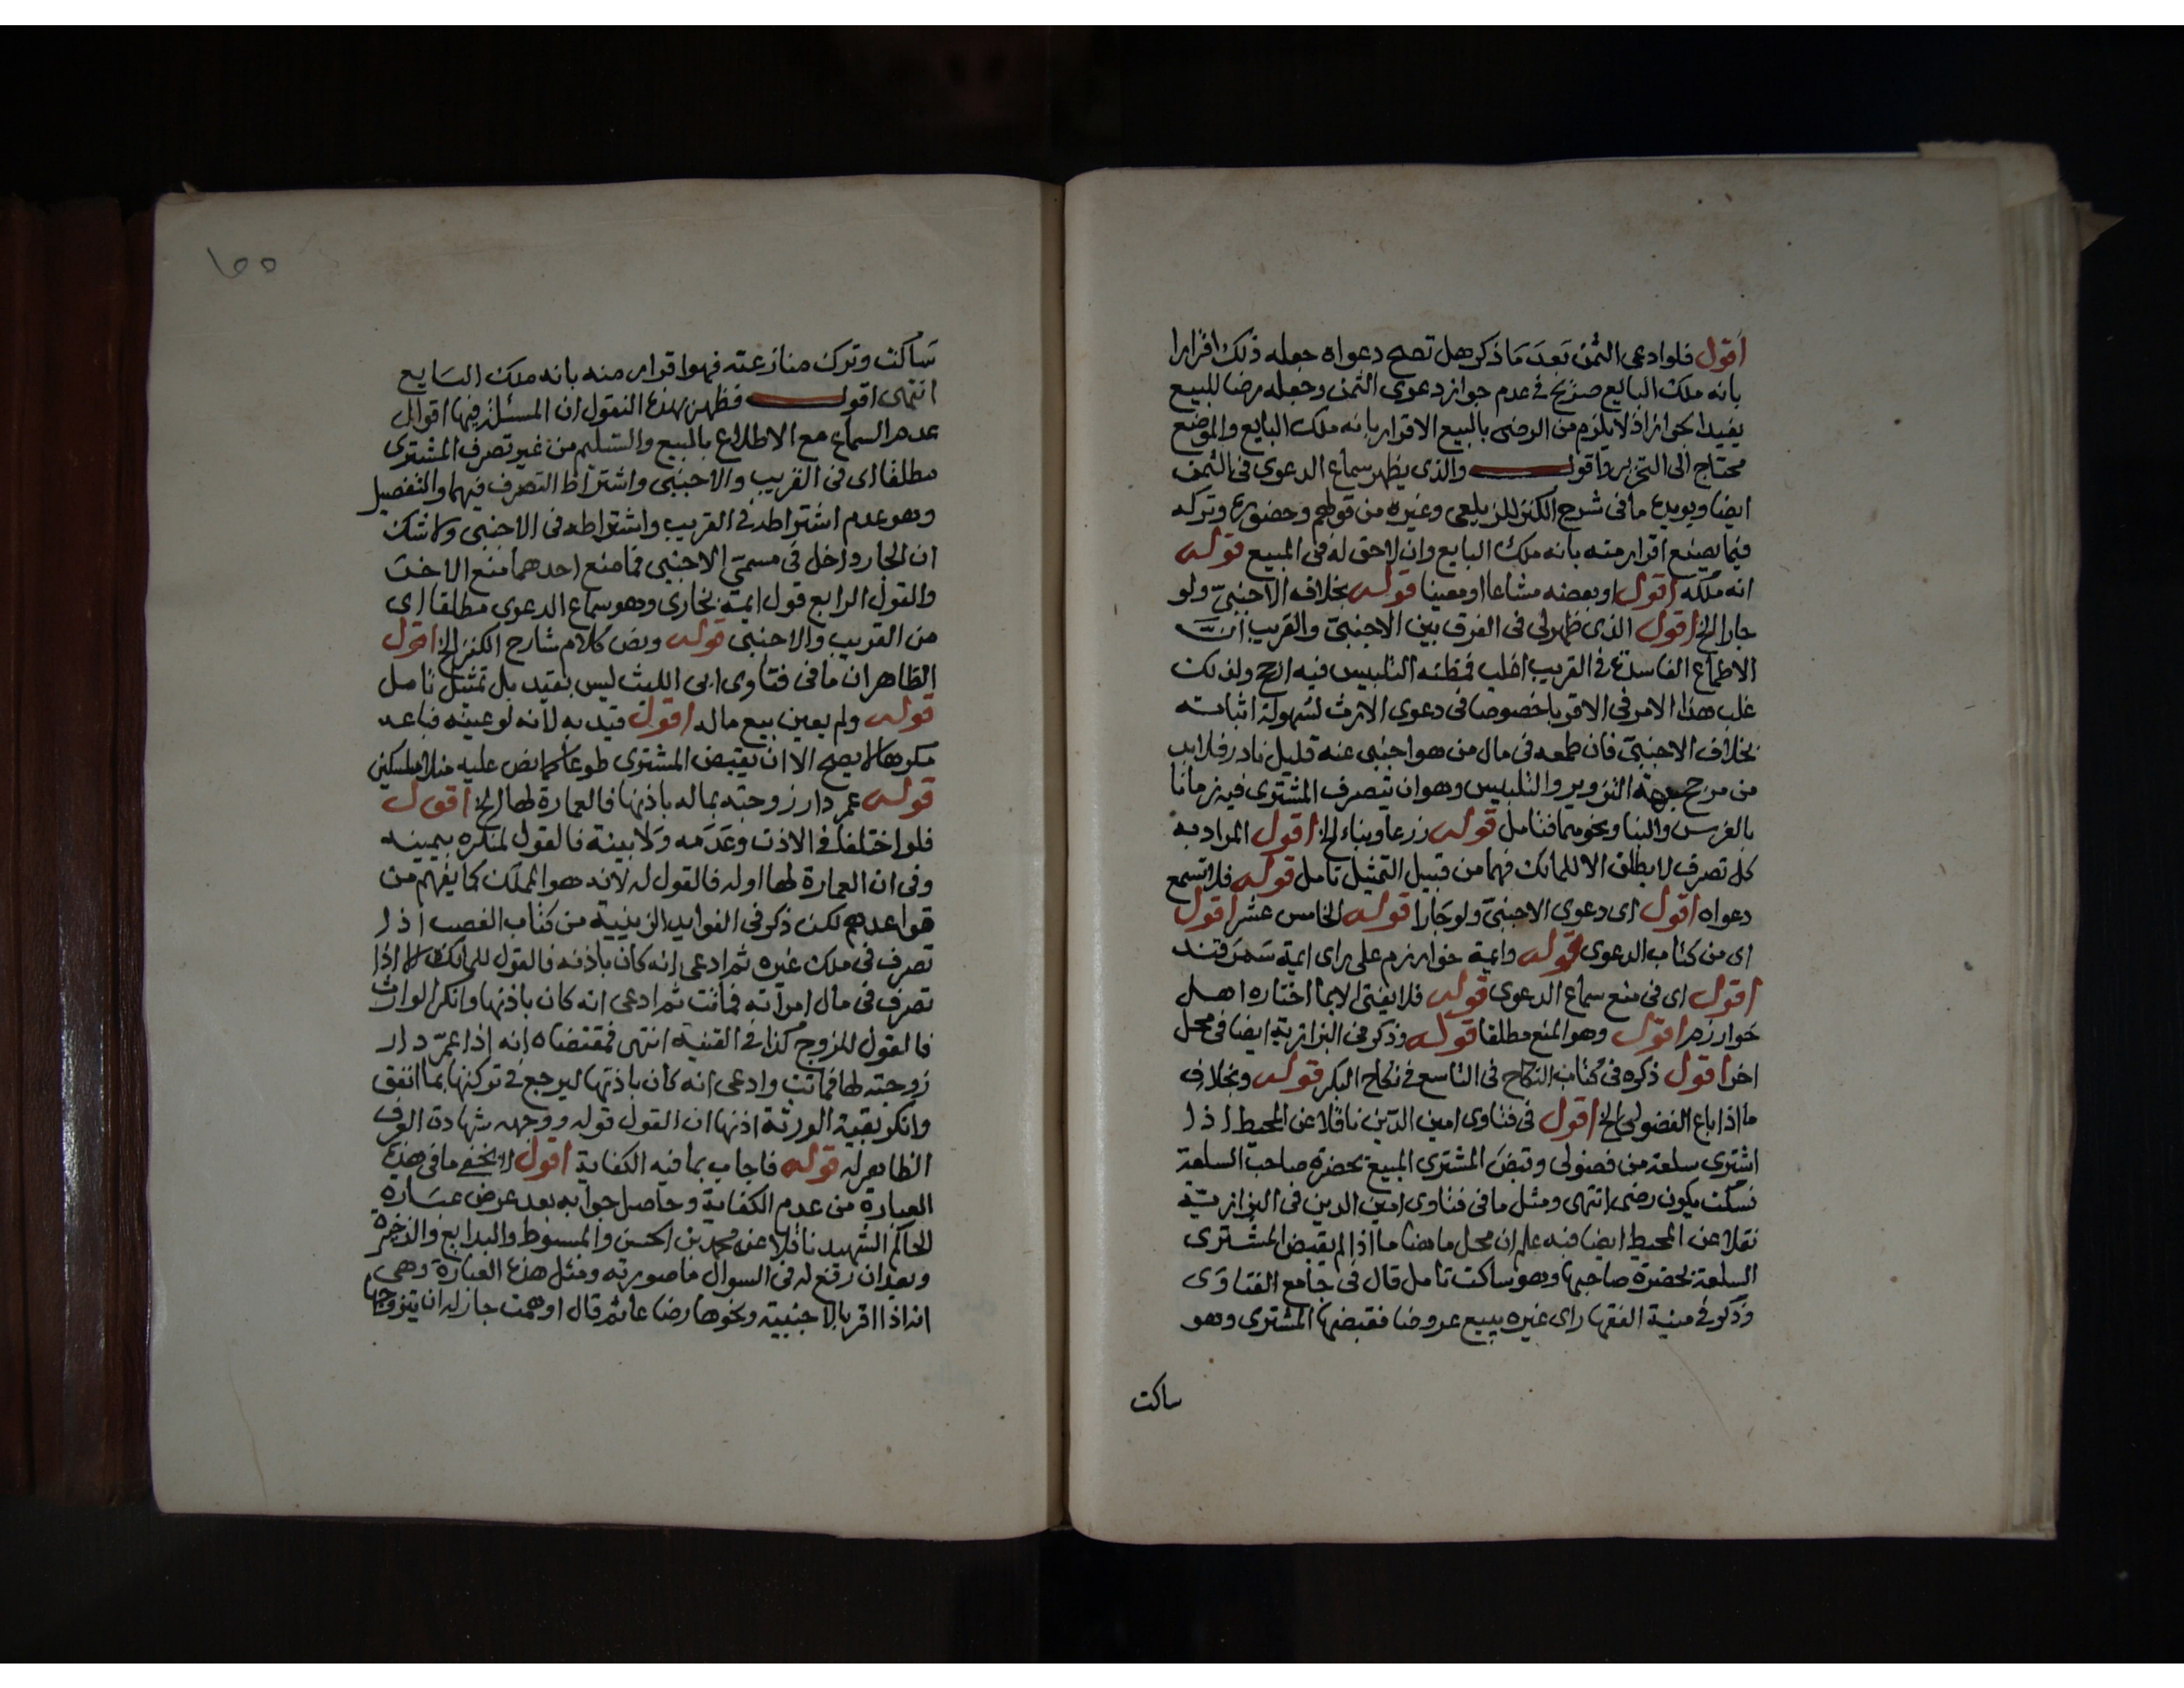 اقول فلو ادعى الثمن بعد ما ذكر هل تصح دعواه جعله ذلك اقرارا
بانه ملك البايع صريح في عدم جواز دعوى الثمن وجعله رضا للبيع
يفيد الجواز اذ لا يلزم من الرضى بالبيع الاقرار بانه ملك البايع والموضع
محتاج الى التحرير واقول والذى يظهر سماع الدعوى فى الثمن
ايضا ويويده ما فى شرح الكنز للزيلعى وغيره من قولهم وحضوره وتركه
فيما يصنع اقرار منه بانه ملك البايع وان لا حق له فى المبيع قوله
انه ملكه اقول او بعضه مشاعا او معينا قوله بخلاف الاجنبى ولو
جارا الخ اقول الذى ظهر لى فى الفرق بين الاجنبى والقريب ان
الاطماع الفاسدة فى القريب اغلب فمظنة التلبيس فيه ارجح ولذلك
غلب هذا الامر فى الاقربا خصوصا فى دعوى الارث لسهولة اثباته
بخلاف الاجنبى فان طمعه فى مال من هو اجنبى عنه قليل نادر فلا بد
من مرجح جهة التزوير والتلبيس وهو ان يتصرف المشترى فيه زمانا
بالغرس والبنا ونحوهما فتامل قوله زرعا وبناء الخ اقول المراد به
كل تصرف لا يطلق الا للمالك فهما من قبيل التمثيل تامل قوله فلا تسمع
دعواه اقول اى دعوى الاجنبى ولو جارا قوله الخامس عشر اقول
اى من كتاب الدعوى قوله وايمة خوارزم على راى ايمة سمرقند
اقول اى فى منع سماع الدعوى قوله فلا يفتى الا بما اختاره اهل
خوارزم اقول وهو المنع مطلقا قوله وذكر فى البزازية ايضا فى محل
اخر اقول ذكره فى كتاب النكاح فى التاسع فى نكاح البكر قوله وبخلاف
ما اذا باع الفضولى الخ اقول فى فتاوى امين الدين ناقلا عن المحيط اذا
اشترى سلعة من فضولى وقبض المشترى المبيع بحضرة صاحب السلعة
فسكت يكون رضى انتهى ومثل ما فى فتاوى امين الدين فى البزازية
نقلا عن المحيط ايضا فبه علم ان محل ما هنا ما اذا لم يقبض المشترى
السلعة بحضرة صاحبها وهو ساكت تامل قال فى جامع الفتاوى
وذكر فى منية الفقها راى غيره يبيع عروضا فقبضها المشترى وهو
ساكت
١٥٥
ساكت وترك منازعته فهو اقرار منه بانه ملك البايع
انتهى اقول فظهر بهذه النقول ان المسئلة فيها اقوال
عدم السماع مع الاطلاع بالمبيع والتسليم من غير تصرف المشترى
مطلقا اى فى القريب والاجنبى واشتراط التصرف فيهما والتفصيل
وهو عدم اشتراطه فى القريب واشتراطه فى الاجنبى ولا شك
ان الجار داخل فى مسمى الاجنبى فما منع احدهما منع الاخر
والقول الرابع قول ايمة بخارى وهو سماع الدعوى مطلقا اى
من القريب والاجنبى قوله ونص كلام شارح الكنز الخ اقول
الظاهر ان ما فى فتاوى ابى الليث ليس بقيد بل تمثيل تامل
قوله ولم يعين بيع ماله اقول قيد به لانه لو عينه فباعه
مكرها لا يصح الا ان يقبض المشترى طوعا كما نص عليه
قوله عمر دار زوجته بماله باذنها فالعمارة لها الخ اقول
فلو اختلفا فى الاذن وعدمه ولا بينة فالقول لمنكره بيمينه
وفى ان العمارة لها او له فالقول له لانه هو المملك كما يفهم من
قواعدهم لكن ذكر فى الفوايد الزينية من كتاب الغصب اذا
تصرف فى ملك غيره ثم ادعى انه كان باذنه فالقول للمالك الا اذا
تصرف فى مال امراته فماتت ثم ادعى انه كان باذنها وانكر الوارث
فالقول للزوج كذا فى القنية انتهى فمقتضاه انه اذا عمر دار
زوجته لها فماتت وادعى انه كان باذنها ليرجع فى تركتها بما انفق
وانكر بقية الورثة اذنها ان القول قوله ووجهه شهادة العرف
الظاهر له قوله فاجاب بما فيه الكفاية اقول لا يخفى ما فى هذه
العبارة من عدم الكفاية وحاصل جوابه بعد عرض عبارة
الحاكم الشهيد ناقلا عن محمد بن الحسن والمبسوط والبدايع والذخيرة
وبعد ان رفع له فى السوال ما صورته ومثل هذه العبارة وهى
انه اذا اقر بالاجنبية ونحوها رضاعا ثم قال اوهمت جاز له ان يتزوجها